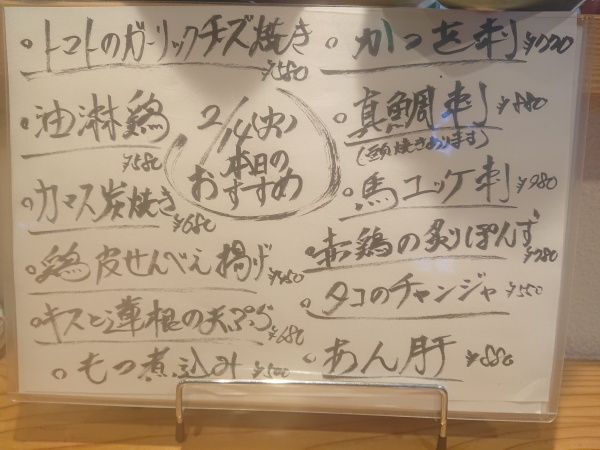 トマトのガーリックチーズ焼き
¥580
油淋鶏
¥580
カマス炭焼き
¥680
鶏皮せんべえ揚げ
キスと蓮根の天ぷら
¥680
もつ煮込み ¥500
2/4(火)
本日の
おすすめ
かつを刺
真鯛刺 ¥880
(頭焼きあります)
馬ユッケ刺 ¥980
赤鶏の炙りぽんず
¥780
タコのチャンジャ ¥550
あん肝 ¥880